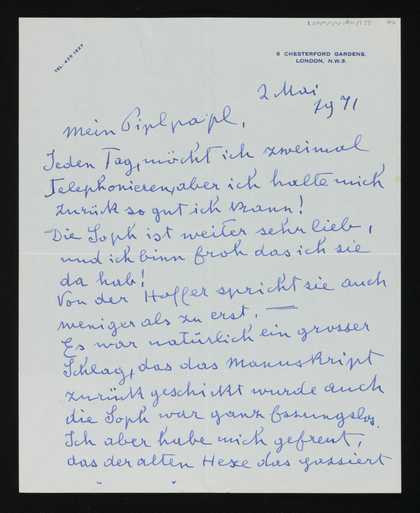 TEL. 435 1627
6 CHESTERFORD GARDENS,
LONDON, N.W.3.
2 Mai
1971
Mein Piplpapl,
Jeden Tag, möcht ich zweimal
Telephonieren, aber ich halte mich
zurük so gut ich kann!
Die Soph ist weiter sehr lieb,
und ich binn froh das ich sie
da hab!
Von der Hoffer spricht sie auch
weniger als zu erst. —
Es war natürlich ein grosser
Schlag, das das Manuskript
zurük geschikt wurde auch
die Soph war ganz fssungslos.
Ich aber habe mich gefreut,
das der alten Hexe das passiert